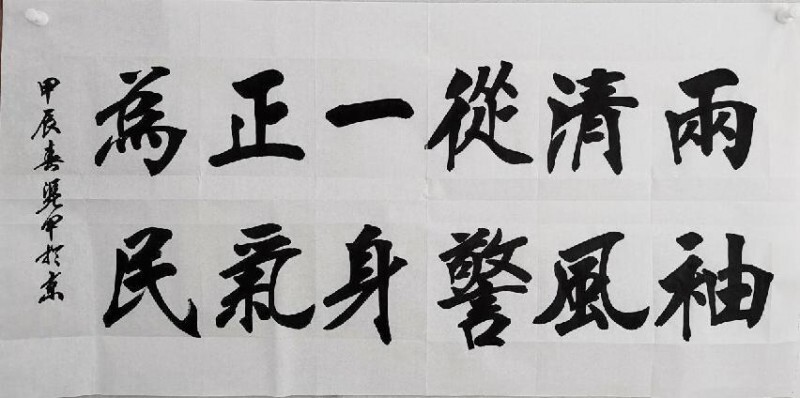 兩袖
清風
從警
一身
正氣
為民
甲辰春 甲於京